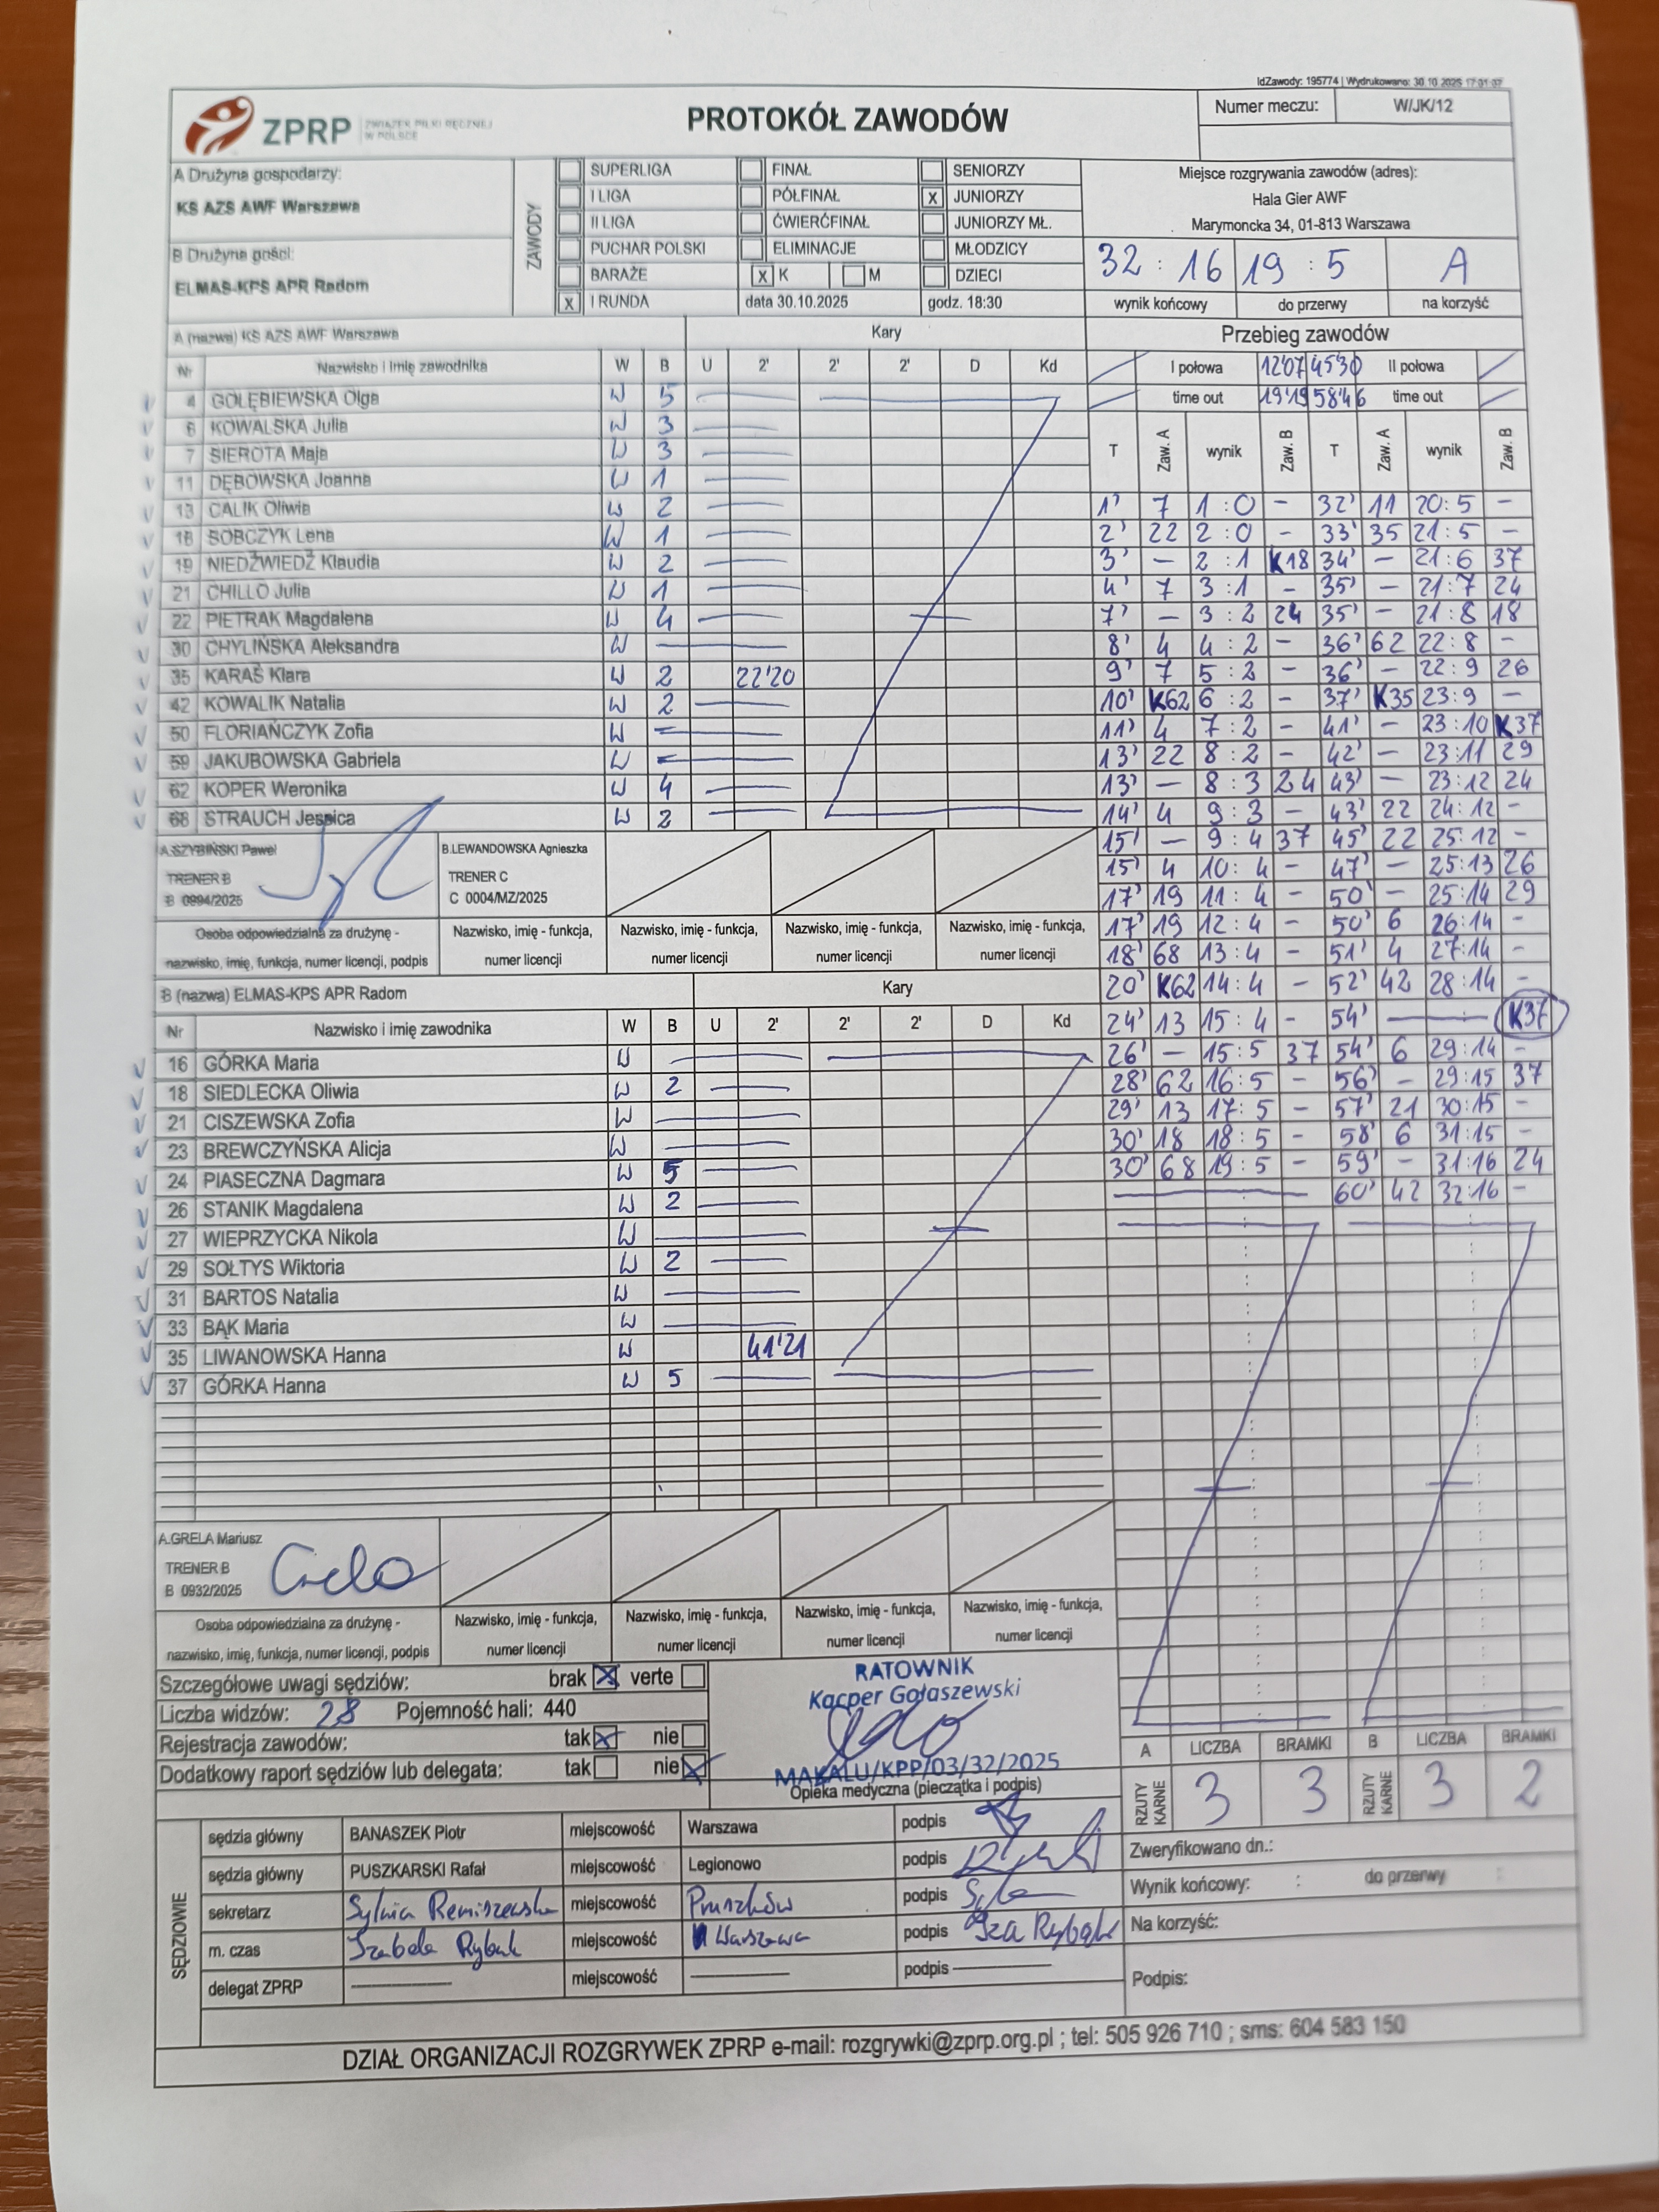 IdZawody: 195774 | Wydrukowano: 30.10.2025 17:01:07
ZPRP ZWIĄZEK PIŁKI RĘCZNEJ W POLSCE
PROTOKÓŁ ZAWODÓW
Numer meczu: W/JK/12
A Drużyna gospodarzy:
KS AZS AWF Warszawa
B Drużyna gości:
ELMAS-KPS APR Radom
ZAWODY
SUPERLIGA FINAŁ SENIORZY
I LIGA PÓŁFINAŁ X JUNIORZY
II LIGA ĆWIERĆFINAŁ JUNIORZY MŁ.
PUCHAR POLSKI ELIMINACJE MŁODZICY
BARAŻE X K M DZIECI
X I RUNDA data 30.10.2025 godz. 18:30
Miejsce rozgrywania zawodów (adres):
Hala Gier AWF
Marymoncka 34, 01-813 Warszawa
32 : 16 19 : 5 A
wynik końcowy do przerwy na korzyść
A (nazwa) KS AZS AWF Warszawa Kary
Nr Nazwisko i imię zawodnika W B U 2' 2' 2' D Kd
4 GOŁĘBIEWSKA Olga W 5
6 KOWALSKA Julia W 3
7 SIEROTA Maja W 3
11 DĘBOWSKA Joanna W 1
13 CALIK Oliwia W 2
18 SOBCZYK Lena W 1
19 NIEDŹWIEDŹ Klaudia W 2
21 CHILLO Julia W 1
22 PIETRAK Magdalena W 4
30 CHYLIŃSKA Aleksandra W
35 KARAŚ Klara W 2 22'20
42 KOWALIK Natalia W 2
50 FLORIAŃCZYK Zofia W
59 JAKUBOWSKA Gabriela W
62 KOPER Weronika W 4
68 STRAUCH Jessica W 2
A.SZYBIŃSKI Paweł
TRENER B
B 0894/2025
B.LEWANDOWSKA Agnieszka
TRENER C
C 0004/MZ/2025
Osoba odpowiedzialna za drużynę - nazwisko, imię, funkcja, numer licencji, podpis
Nazwisko, imię - funkcja, numer licencji
Nazwisko, imię - funkcja, numer licencji
Nazwisko, imię - funkcja, numer licencji
Nazwisko, imię - funkcja, numer licencji
B (nazwa) ELMAS-KPS APR Radom Kary
Nr Nazwisko i imię zawodnika W B U 2' 2' 2' D Kd
16 GÓRKA Maria W
18 SIEDLECKA Oliwia W 2
21 CISZEWSKA Zofia W
23 BREWCZYŃSKA Alicja W
24 PIASECZNA Dagmara W 5
26 STANIK Magdalena W 2
27 WIEPRZYCKA Nikola W
29 SOŁTYS Wiktoria W 2
31 BARTOS Natalia W
33 BĄK Maria W
35 LIWANOWSKA Hanna W 41'21
37 GÓRKA Hanna W 5
A.GRELA Mariusz
TRENER B
B 0932/2025
Osoba odpowiedzialna za drużynę - nazwisko, imię, funkcja, numer licencji, podpis
Nazwisko, imię - funkcja, numer licencji
Nazwisko, imię - funkcja, numer licencji
Nazwisko, imię - funkcja, numer licencji
Nazwisko, imię - funkcja, numer licencji
Przebieg zawodów
I połowa 1207 4530 II połowa
time out 1919 5846 time out
T Zaw. A wynik Zaw. B T Zaw. A wynik Zaw. B
1' 7 1:0 - 32' 11 20:5 -
2' 22 2:0 - 33' 35 21:5 -
3' - 2:1 K18 34' - 21:6 37
4' 7 3:1 - 35' - 21:7 24
7' - 3:2 24 35' - 21:8 18
8' 4 4:2 - 36' 62 22:8 -
9' 7 5:2 - 36' - 22:9 26
10' K62 6:2 - 37' K35 23:9 -
11' 4 7:2 - 41' - 23:10 K37
13' 22 8:2 - 42' - 23:11 29
13' - 8:3 24 43' - 23:12 24
14' 4 9:3 - 43' 22 24:12 -
15' - 9:4 37 45' 22 25:12 -
15' 4 10:4 - 47' - 25:13 26
17' 19 11:4 - 50' - 25:14 29
17' 19 12:4 - 50' 6 26:14 -
18' 68 13:4 - 51' 4 27:14 -
20' K62 14:4 - 52' 42 28:14 -
24' 13 15:4 - 54' K37
26' - 15:5 37 54' 6 29:14 -
28' 62 16:5 - 56' - 29:15 37
29' 13 17:5 - 57' 21 30:15 -
30' 18 18:5 - 58' 6 31:15 -
30' 68 19:5 - 59' - 31:16 24
60' 42 32:16 -
Szczegółowe uwagi sędziów: brak X verte
Liczba widzów: 28 Pojemność hali: 440
Rejestracja zawodów: tak X nie
Dodatkowy raport sędziów lub delegata: tak nie X
RATOWNIK
Kacper Gołaszewski
MAKALU/KPP/03/32/2025
Opieka medyczna (pieczątka i podpis)
A LICZBA BRAMKI B LICZBA BRAMKI
RZUTY KARNE 3 3 RZUTY KARNE 3 2
SĘDZIOWIE
sędzia główny BANASZEK Piotr miejscowość Warszawa podpis
sędzia główny PUSZKARSKI Rafał miejscowość Legionowo podpis
sekretarz Sylwia Remiszewska miejscowość Pruszków podpis
m. czas Izabela Rybak miejscowość Warszawa podpis Iza Rybak
delegat ZPRP miejscowość podpis
Zweryfikowano dn.:
Wynik końcowy: : do przerwy :
Na korzyść:
Podpis:
DZIAŁ ORGANIZACJI ROZGRYWEK ZPRP e-mail: rozgrywki@zprp.org.pl ; tel: 505 926 710 ; sms: 604 583 150